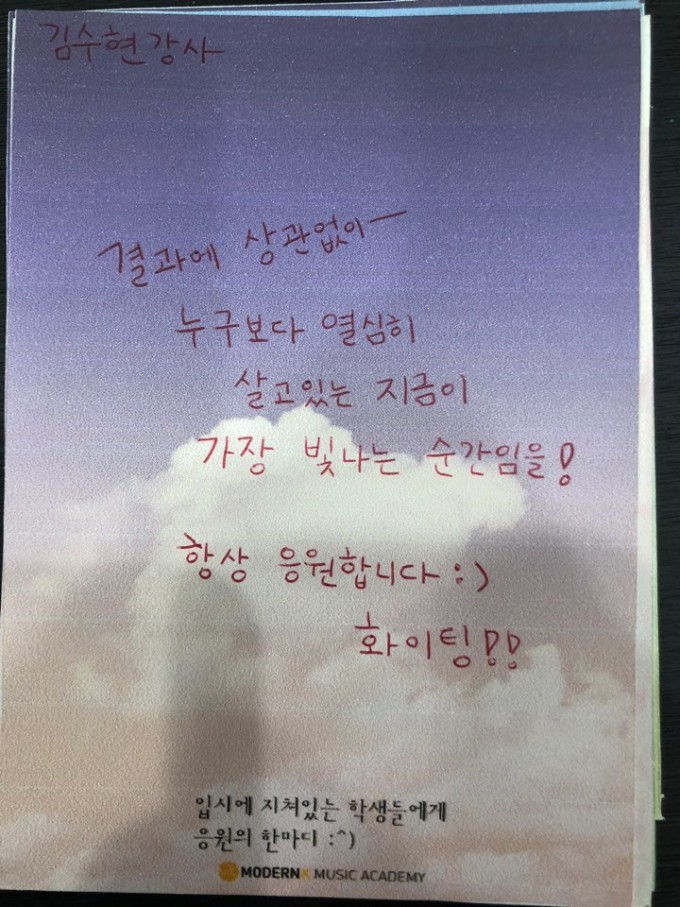 김수현강사
결과에 상관없이ㅡ
누구보다 열심히
살고있는 지금이
가장 빛나는 순간임을!
항상 응원합니다 :)
화이팅!!
입시에 지쳐있는 학생들에게
응원의 한마디 :^)
MODERNK MUSIC ACADEMY